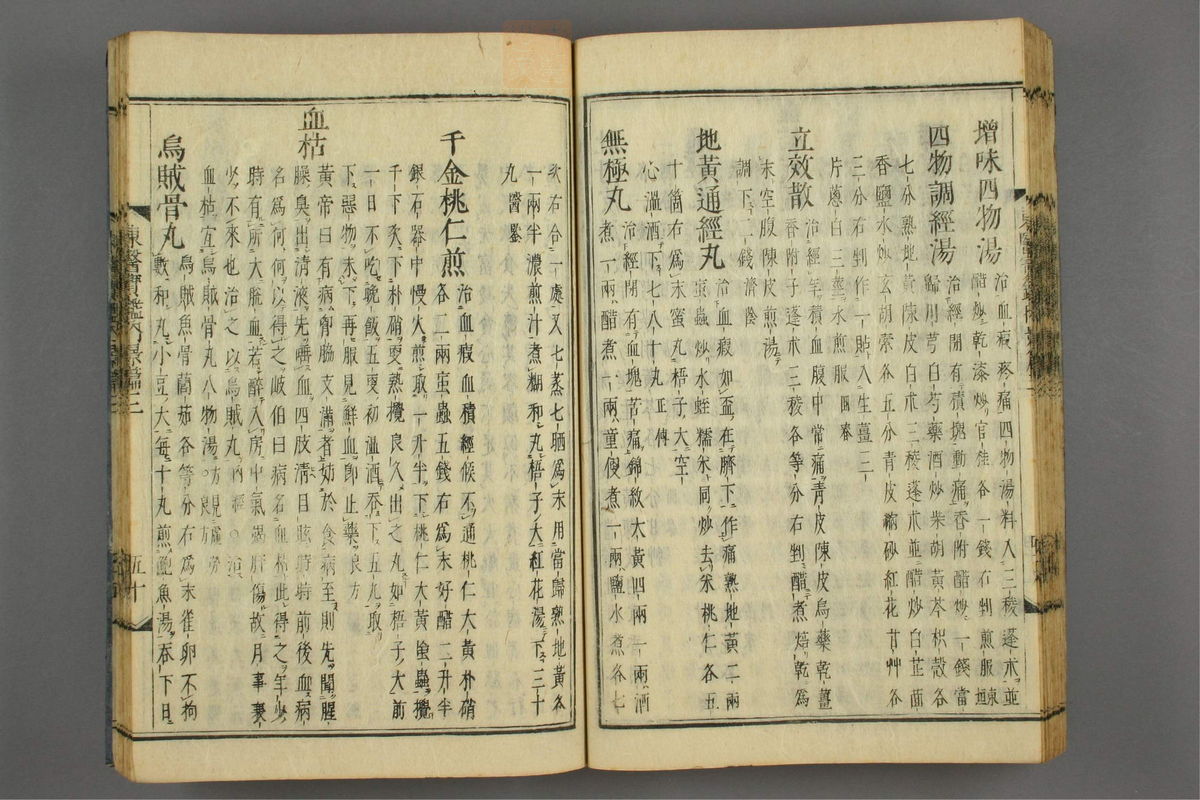 增味四物湯治血瘕疼痛四物湯料入三稜蓬朮並
醋炒乾漆炒官桂各一錢右剉煎服東垣
四物調經湯治經閉有積塊動痛香附醋炒一錢當
歸川芎白芍藥酒炒柴胡黃芩枳殼各
七分熟地黃陳皮白朮三稜蓬朮並醋炒白芷茴
香鹽水炒玄胡索各五分青皮縮砂紅花甘艸各
三分右剉作一貼入生薑三
片蔥白三莖水煎服回春
立效散治經年積血腹中常痛青皮陳皮烏藥乾薑
香附子蓬朮三稜各等分右剉醋煮焙乾為
末空腹陳皮煎湯
調下二錢濟蔭
地黃通經丸治血瘕如盃在臍下作痛熟地黃二兩
蝱蟲炒水蛭糯米同炒去米桃仁各五
十箇右為末蜜丸梧子大空
心溫酒下七八十丸正傳
無極丸治經閉有血塊苦痛錦紋大黃四兩一兩酒
煮一兩醋煮一兩童便煮一兩鹽水煮各七
次右合一處又七蒸七晒為末用當歸熟地黃各
一兩半濃煎汁煮糊和丸梧子大紅花湯下三十
丸醫鑒
千金桃仁煎治血瘕血積經候不通桃仁大黃朴硝
各二兩蝱蟲五錢右為末好醋二升半
銀石器中慢火煎取一升半下桃仁大黃蝱蟲攪
千下次下朴硝更熟攪良久出之丸如梧子大前
一日不吃晚飯五更初溫酒吞下五丸取
下惡物未下再服見鮮血即止藥良方
血枯
黃帝曰有病胸脇支滿者妨於食病至則先聞腥
臊臭出清液先唾血四肢清目眩時時前後血病
名為何何以得之岐伯曰病名血枯此得之年少
時有所大脫血若醉入房中氣竭肝傷故月事衰
少不來也治之以烏賊丸內經○治
血枯宜烏賊骨丸八物湯方見虛勞
烏賊骨丸烏賊魚骨藘茹各等分右為末雀卵不拘
數和丸小豆大每十丸煎鮑魚湯吞下日
東醫寶鑑內景篇三
五十